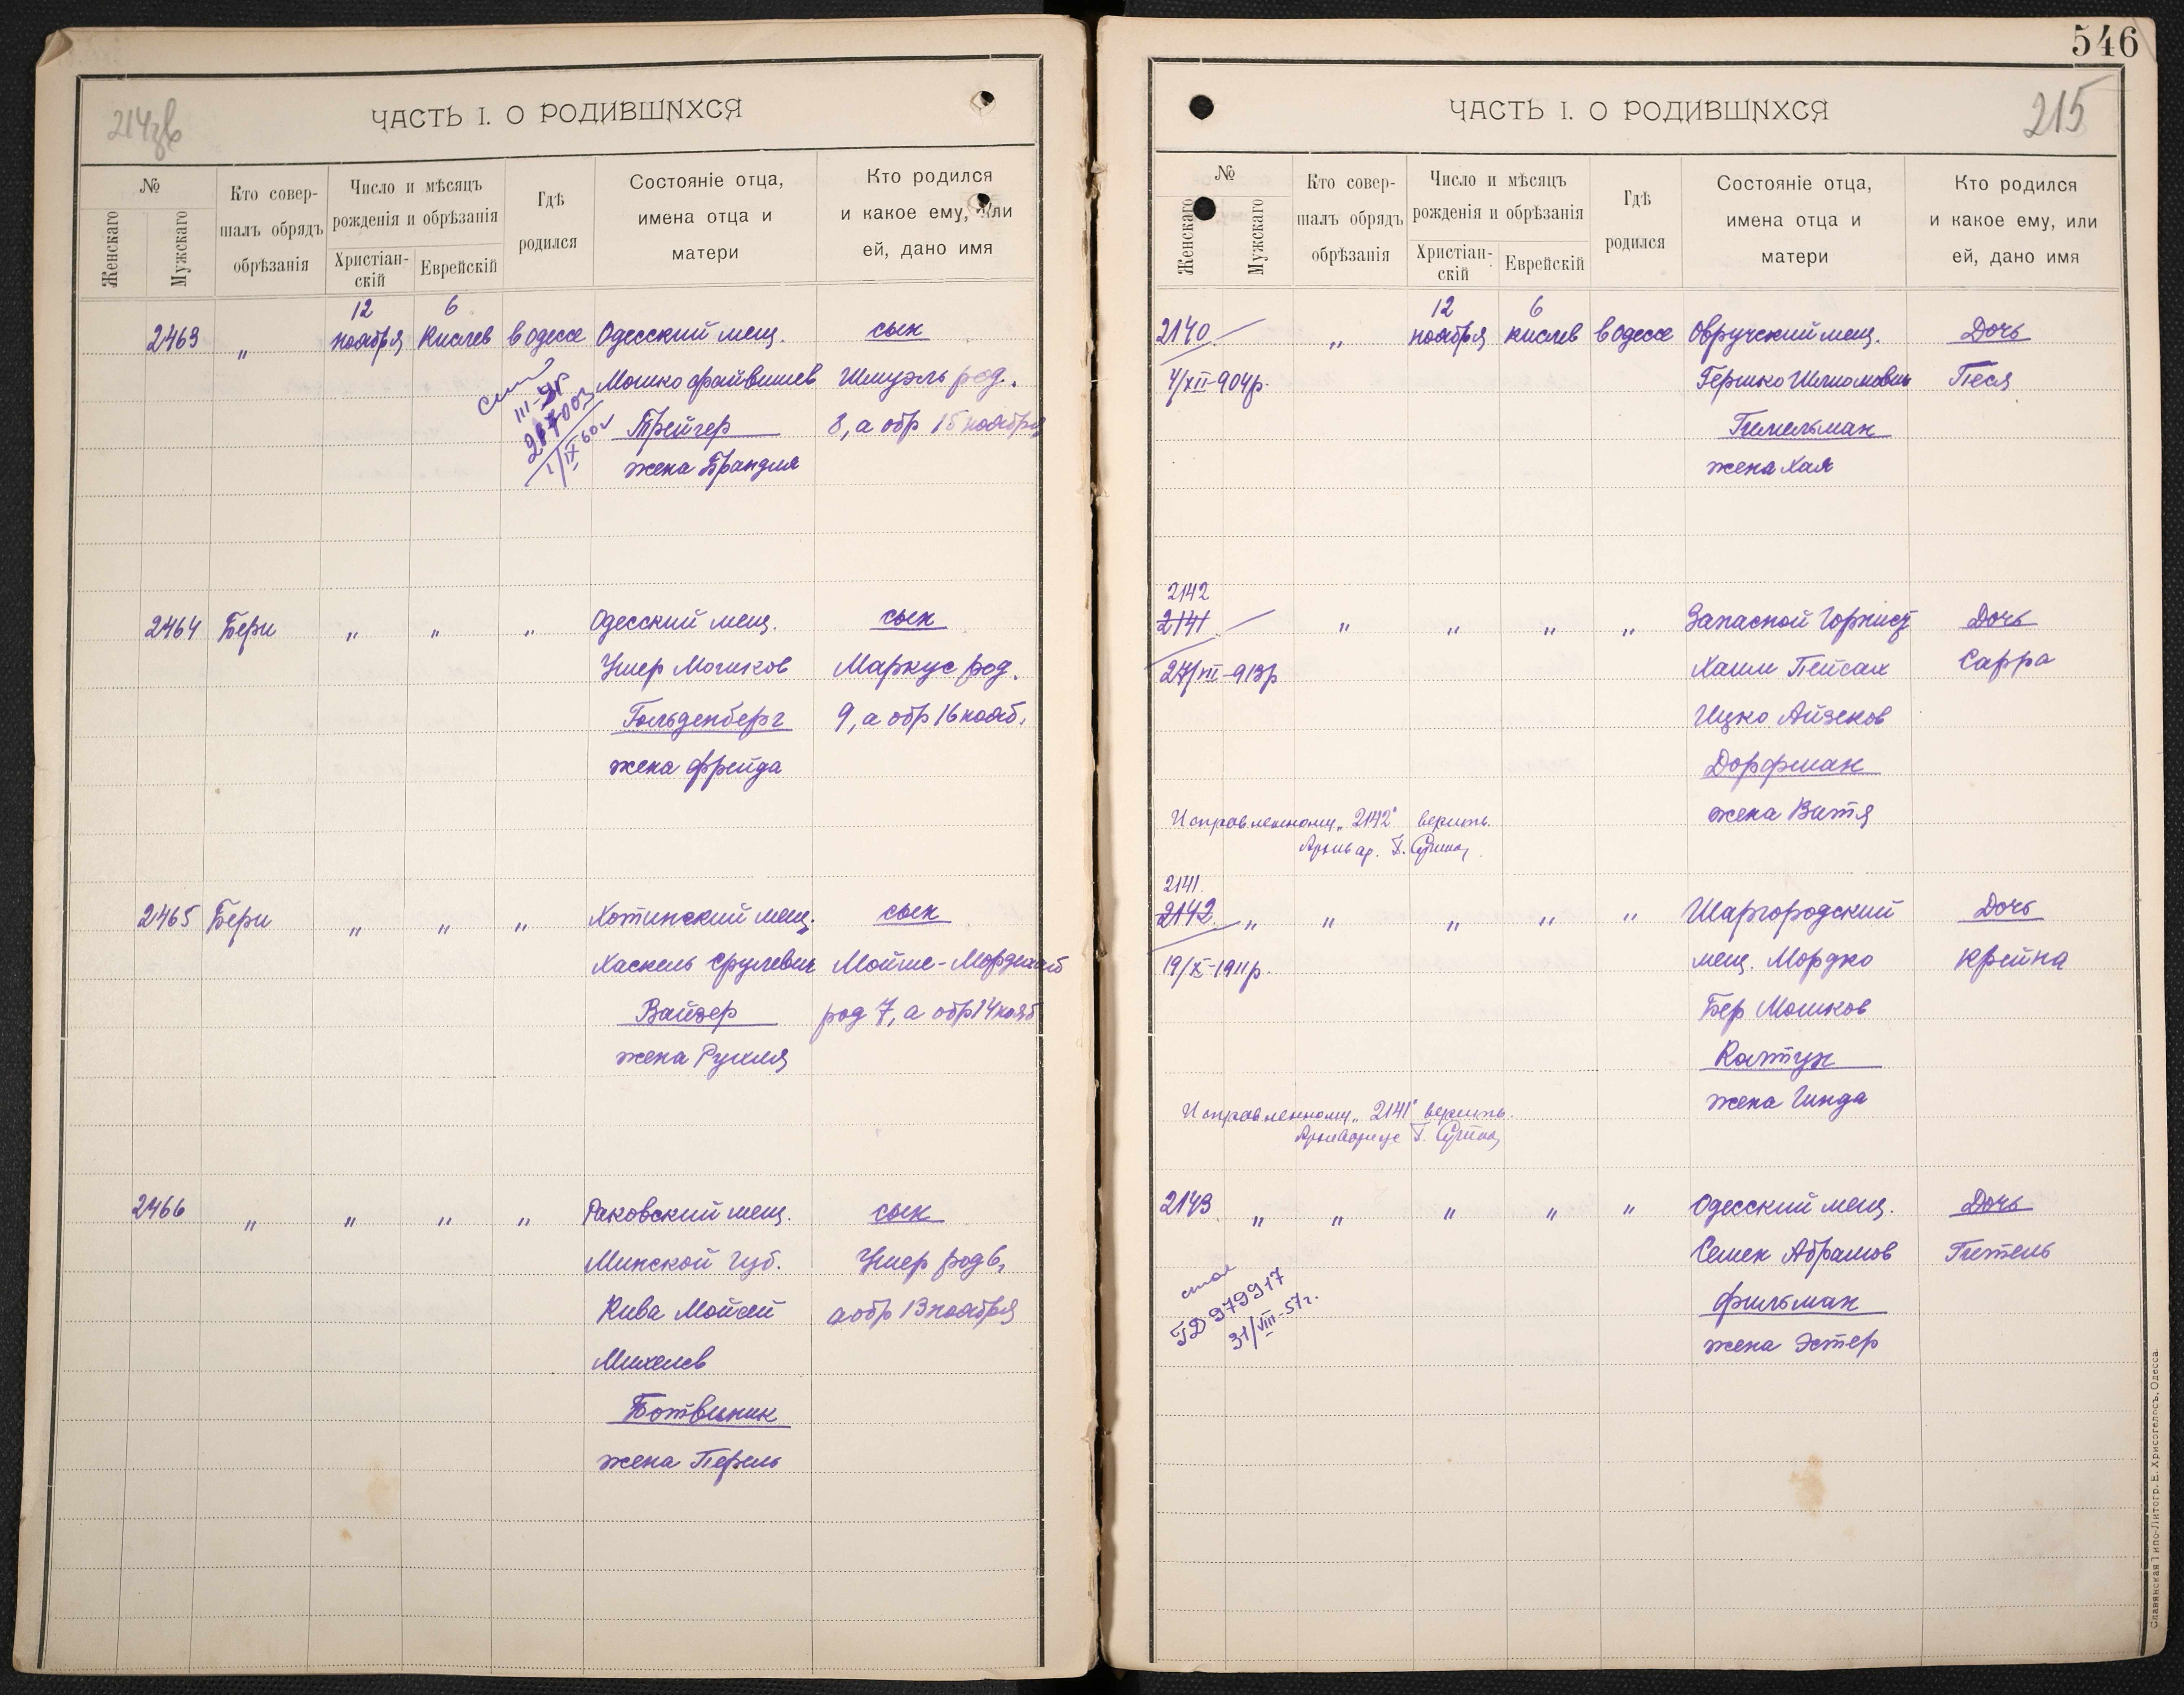 214зв
ЧАСТЬ I. О РОДИВШИХСЯ
№
Женскаго
Мужскаго
Кто совер-
шалъ обрядъ
обрѣзанія
Число и мѣсяцъ
рожденія и обрѣзанія
Христіан-
скій
Еврейскій
Гдѣ
родился
Состояніе отца,
имена отца и
матери
Кто родился
и какое ему, или
ей, дано имя
12 6
2463 " ноября Кислев в Одессе Одесский мещ. сын
Мошко Файвишев Шмуэль род.
Трейгер 8, а обр 15 ноября
жена Брандля
III-ЯГ
287003
1/IX 60г
2464 Бери " " " Одесский мещ. сын
Ушер Мошков Маркус род.
Гольденберг 9, а обр 16 нояб.
жена Фрейда
2465 Бери " " " Хотинский мещ. сын
Хаскель Срулевич Мойше-Мордехай
Вайзер род 7, а обр 14 нояб
жена Рухля
2466 " " " " Раковский мещ. сын
Минской губ. Ушер род 6,
Кива Мойсей а обр 13 ноября
Михелев
Ботвиник
жена Перель
546
215
ЧАСТЬ I. О РОДИВШИХСЯ
№
Женскаго
Мужскаго
Кто совер-
шалъ обрядъ
обрѣзанія
Число и мѣсяцъ
рожденія и обрѣзанія
Христіан-
скій
Еврейскій
Гдѣ
родился
Состояніе отца,
имена отца и
матери
Кто родился
и какое ему, или
ей, дано имя
12 6
2140 " ноября кислев в Одессе Овручский мещ. Дочь
4/XII-904р. Гершко Шлиомович Песя
Гимельман
жена Хая
2142
2141 " " " " Запасной Горнист Дочь
27/VII-913р Хаим Пейсах Сарра
Ицко Айзеков
Дорфман
жена Витя
Исправленному „2142" верить.
Архивар. Г.
2141
2142 " " " " " Шаргородский Дочь
19/X-1911р. мещ. Мордко Крейна
Бер Мошков
Колтун
жена Гинда
Исправленному „2141" верить.
Архивариус Г.
2143 " " " " " Одесский мещ. Дочь
Семен Абрамов Гитель
Фильман
жена Эстер
ГД 979917
31/VIII-57г.
Славянская Типо-Литогр. Е. Хрисогелосъ, Одесса